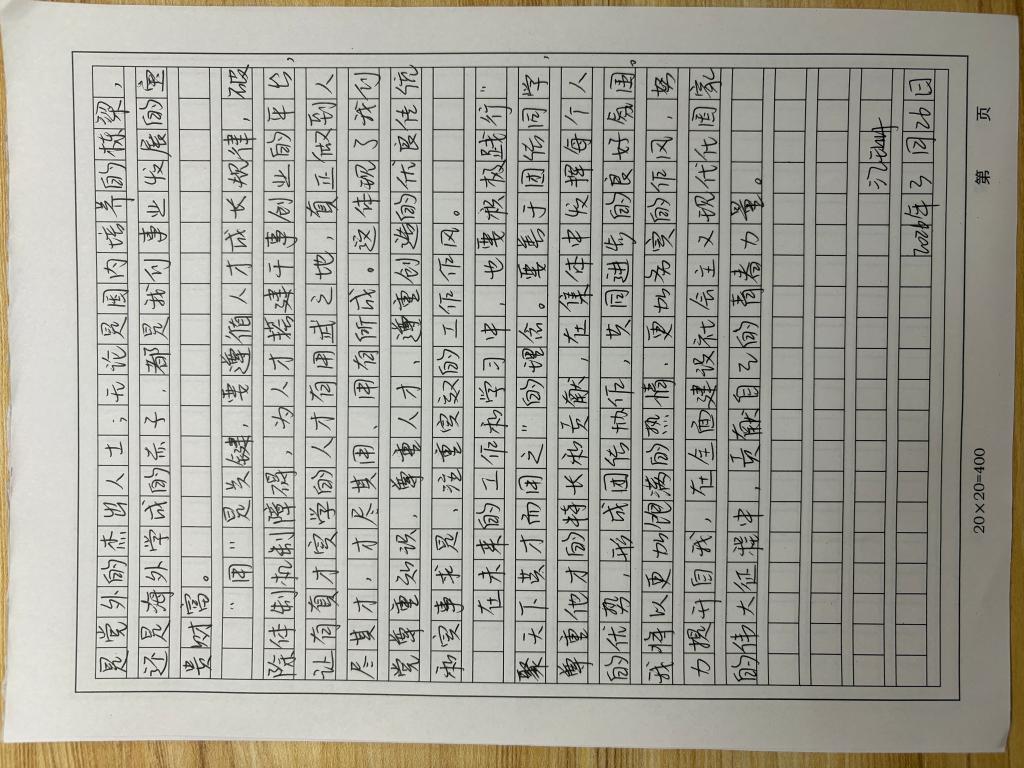 是党外的杰出人士；无论是国内培养的栋梁，
还是海外学成的赤子，都是我们事业发展的宝
贵财富。
“用”是关键，要遵循人才成长规律，破
除体制机制障碍，为人才搭建干事创业的平台，
让有真才实学的人才有用武之地，真正做到人
尽其才，才尽其用、用有所成。这体现了我们
党尊重知识，尊重人才、尊重创造的优良传统
和实事求是、注重实效的工作作风。
在未来的工作和学习中，也要积极践行“
聚天下英才而用之”的理念。要善于团结同学，
尊重他才的特长和贡献，在集体中发挥每个人
的优势，形成团结协作，共同进步的良好氛围。
我将以更加饱满的热情、更加务实的作风，努
力提升自我，在全面建设社会主义现代化国家
的伟大征程中，贡献自己的青春力量。
2026年3月26日
20×20=400 第 页